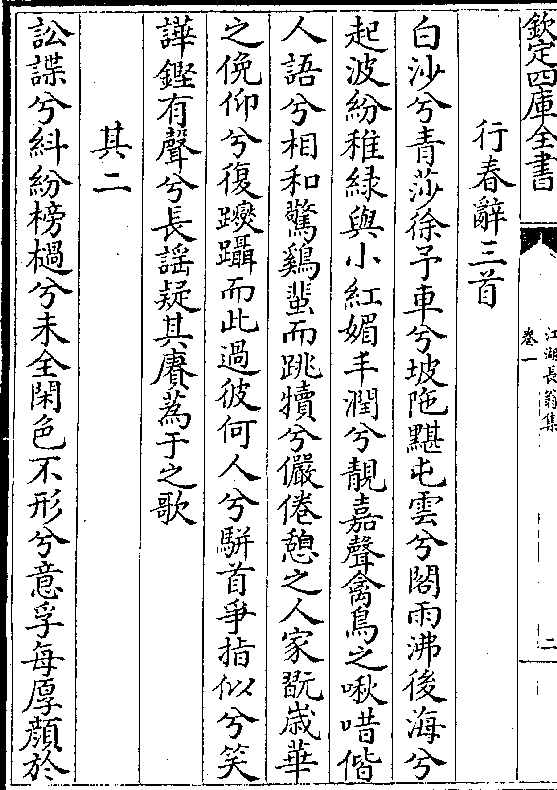 欽定四庫全書
江湖長翁集
卷一
二
行春辭三首
白沙兮青莎徐予車兮坡陁黮屯雲兮閣雨沸後海兮
起波紛稚緑與小紅媚丰潤兮靚嘉聲禽鳥之啾唶偕
人語兮相和驚鷄蜚而跳犢兮儼倦憩之人家翫嵗華
之俛仰兮復躞躡而此過彼何人兮駢首爭指似兮笑
譁鏗有聲兮長謡疑其賡蔿于之歌
其二
訟諜兮糾紛榜檛兮未全閑色不形兮意孚每厚顔於